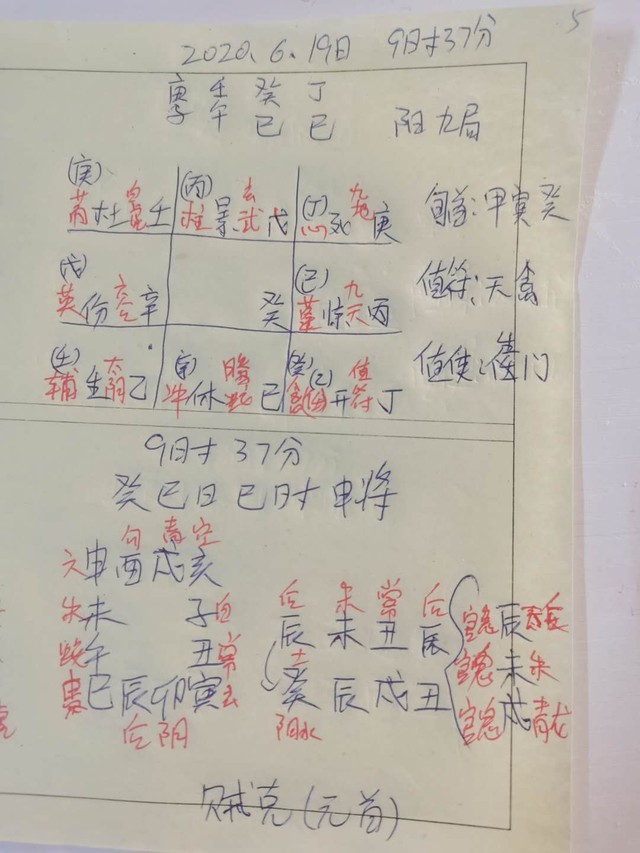 5
2020.6.19日 9时37分
庚 壬 癸 丁
子 午 巳 巳 阳九局
(庚) (丙) 玄 (丁) 九地
芮杜白虎壬 柱景武戊 心死庚 旬首:甲寅癸
(戊) (己) 九
英伤六合辛 癸 蓬惊天丙 值符:天禽
(壬) 太 (辛) 螣 (癸)(乙) 值
辅生阴乙 冲休蛇己 开符丁 值使:门
9时37分
癸巳日巳时申将
勾青空
六申酉戌亥
朱未 子白 后 朱 常 后
蛇午 丑常 辰 未 丑 辰 官鬼辰后
土 官鬼未朱
贵巳辰卯寅玄 癸 辰 戌 丑 官鬼戌青龙
后阴 阳水
贼克(元首)